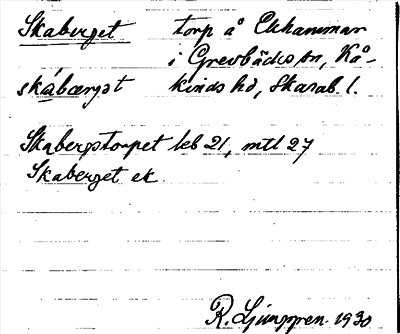 Skaberget torp å Ekhammar
i Grevbäcks sn, Kå-
skábærjət kinds hd, Skarab. l.
Skabergstorpet leb 21, mtl 27
Skaberget ek
R. Ljunggren 1930